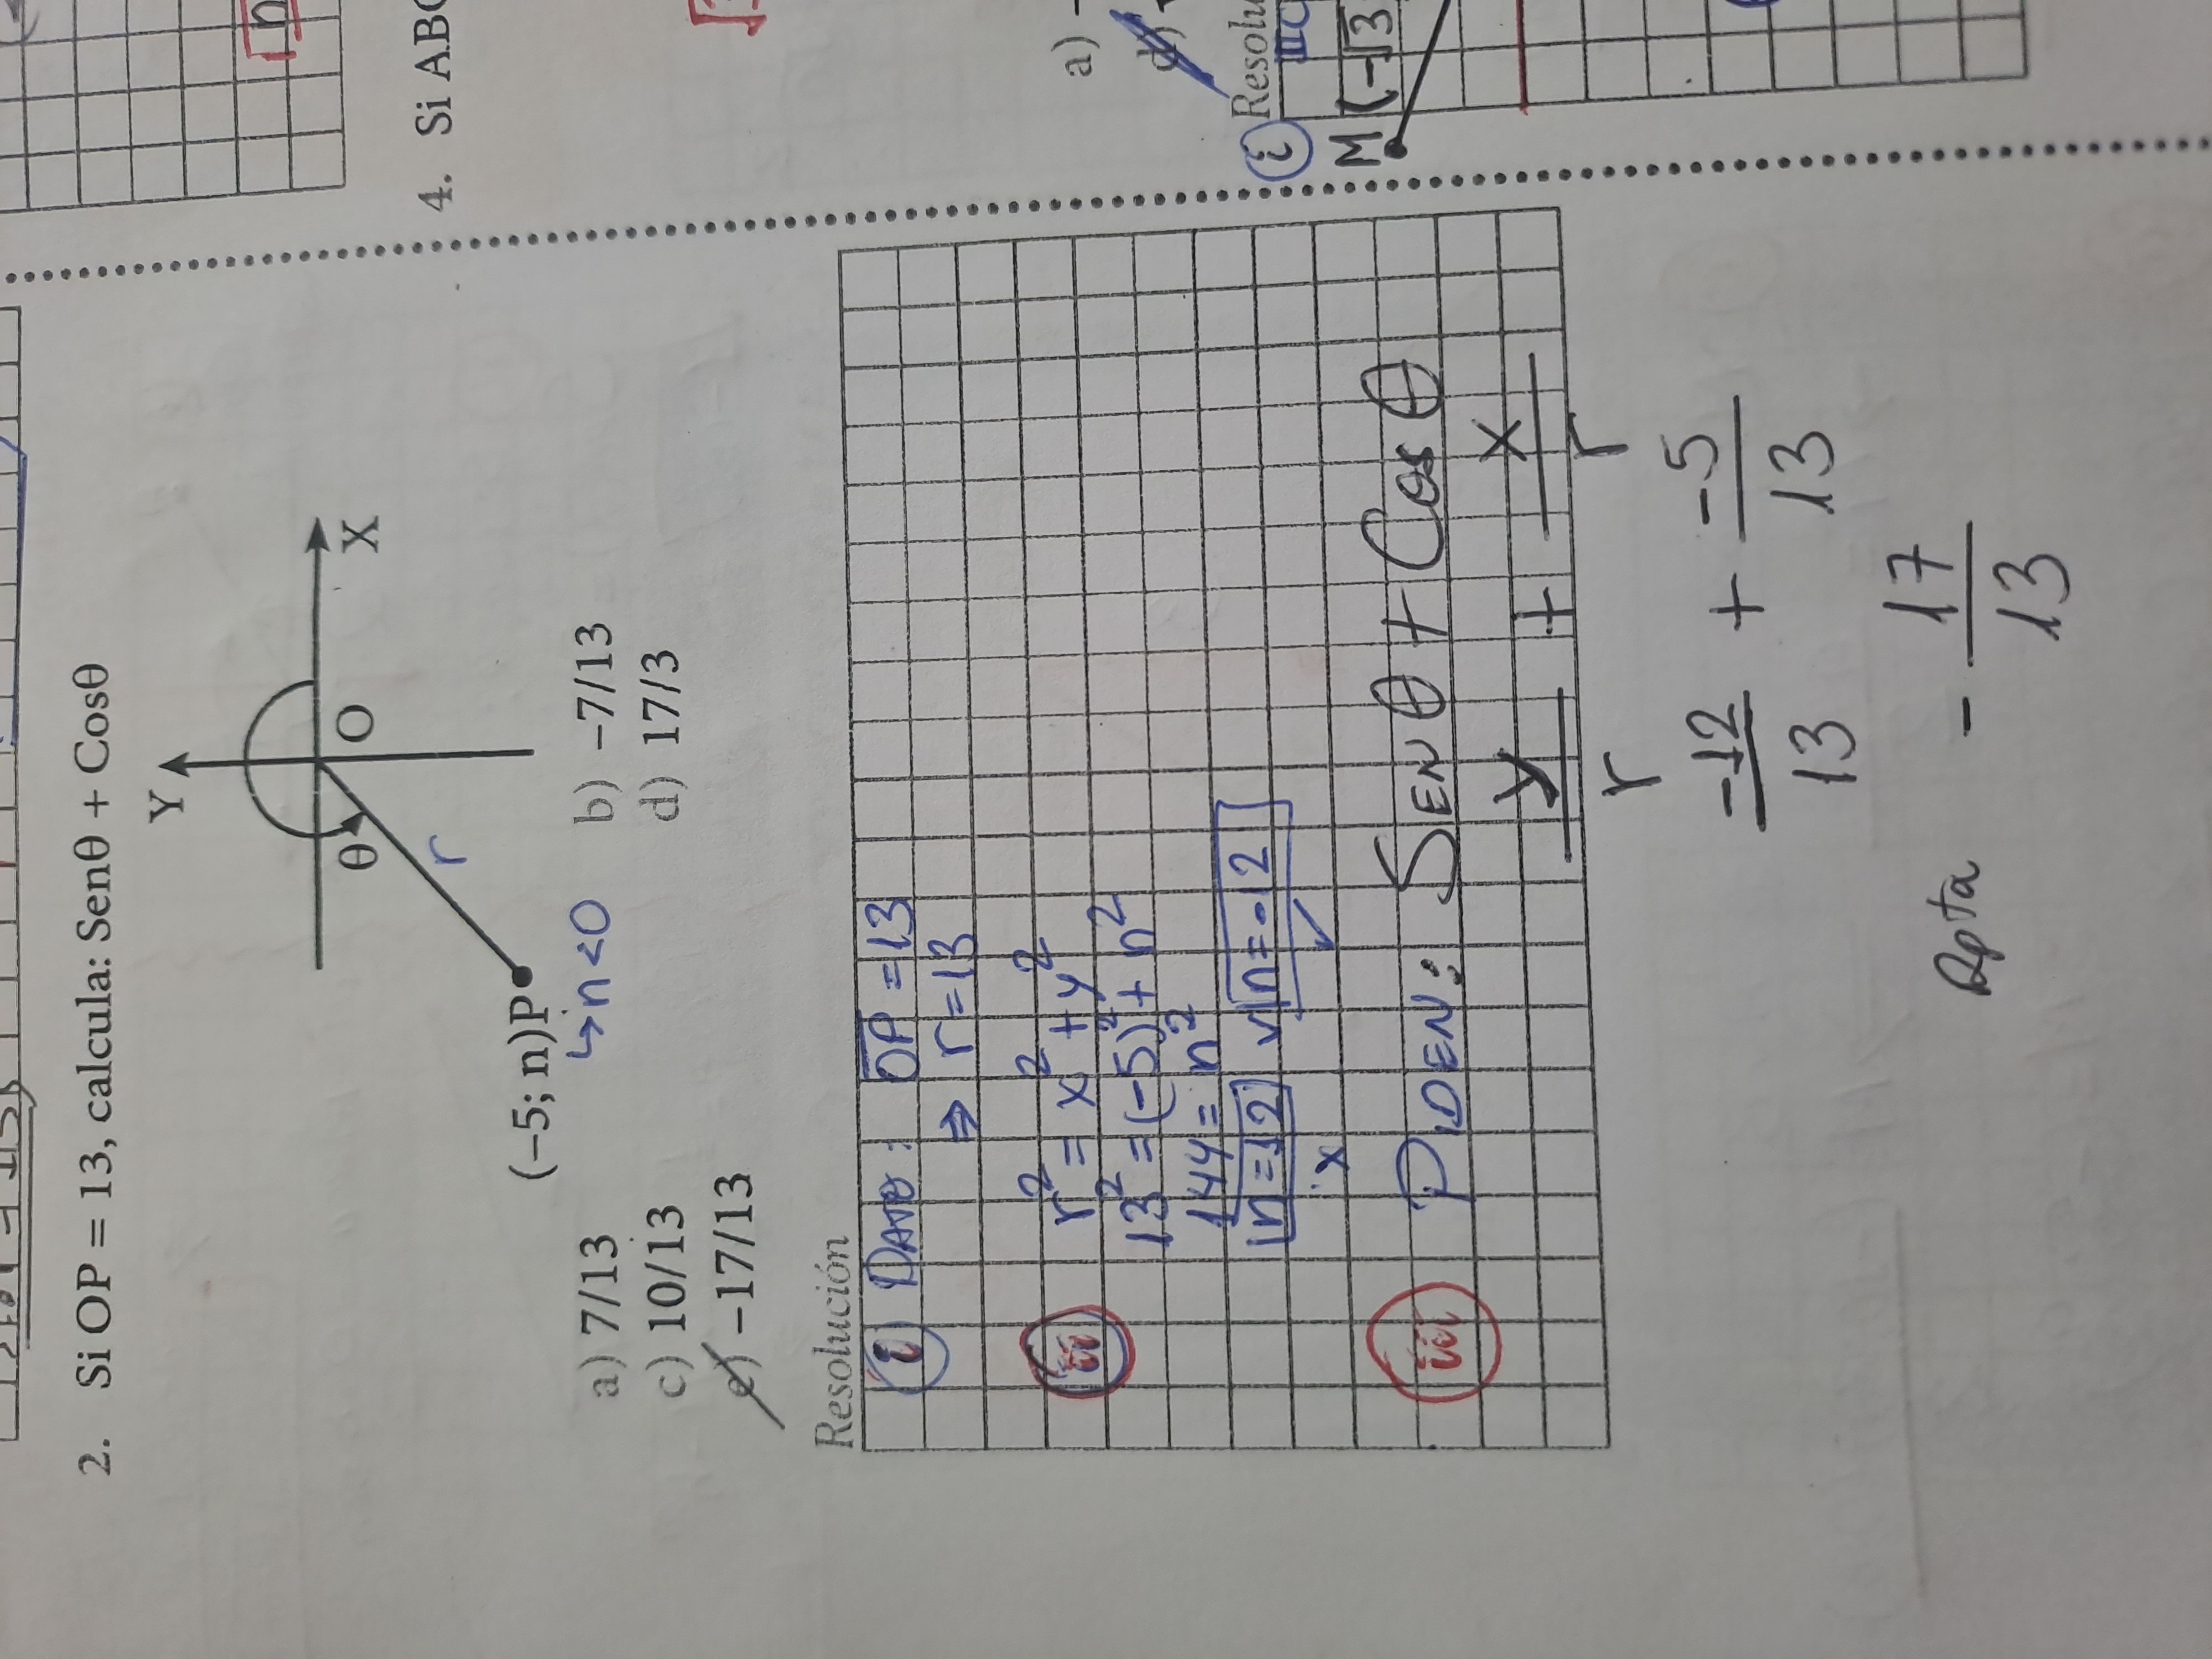 2. Si OP = 13, calcula: Senθ + Cosθ
Y
θ
O
X
r
(–5; n)P
↳n<0
a) 7/13
b) –7/13
c) 10/13
d) 17/3
e) –17/13
Resolución
i DATO: OP = 13
⇒ r = 13
ii r² = x² + y²
13² = (-5)² + n²
144 = n²
n = 12 v n = -12
x ✓
iii PIDEN: SEN θ + Cos θ
y/r + x/r
-12/13 + -5/13
Rpta - 17/13
n
4. Si ABC
a) –
d)
i Resolu
IIIC
M (-√3